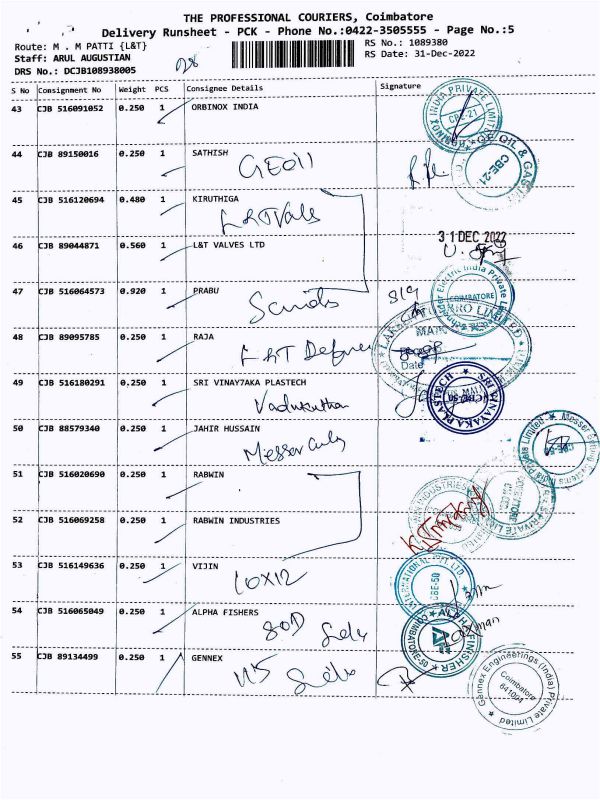 THE PROFESSIONAL COURIERS, Coimbatore
Delivery Runsheet - PCK - Phone No.:0422-3505555 - Page No.:5
Route: M . M PATTI {L&T} RS No.: 1089380
Staff: ARUL AUGUSTIAN RS Date: 31-Dec-2022
DRS No.: DCJB108938005
S No Consignment No Weight PCS Consignee Details Signature
43 CJB 516091052 0.250 1 ORBINOX INDIA
CBE-21
44 CJB 89150016 0.250 1 SATHISH
GEOil
GE OIL & GAS
CBE-21
45 CJB 516120694 0.480 1 KIRUTHIGA
L&T Valves
31 DEC 2022
46 CJB 89044871 0.560 1 L&T VALVES LTD
47 CJB 516064573 0.920 1 PRABU
Electric India Private
COIMBATORE
48 CJB 89095785 0.250 1 RAJA
L&T Defence
Date
49 CJB 516180291 0.250 1 SRI VINAY7AKA PLASTECH
SRI VINAYAKA PLASTECH
50 CJB 88579340 0.250 1 JAHIR HUSSAIN
Messer
51 CJB 516020690 0.250 1 RABWIN
52 CJB 516069258 0.250 1 RABWIN INDUSTRIES
53 CJB 516149636 0.250 1 VIJIN
10X12
INTERNATIONAL PVT LTD
CBE-50
54 CJB 516065049 0.250 1 ALPHA FISHERS
Laxman
ALPHA FINISHER
COIMBATORE-50
55 CJB 89134499 0.250 1 GENNEX
Gennex Engineerings (India) Private Limited
Coimbatore
641004